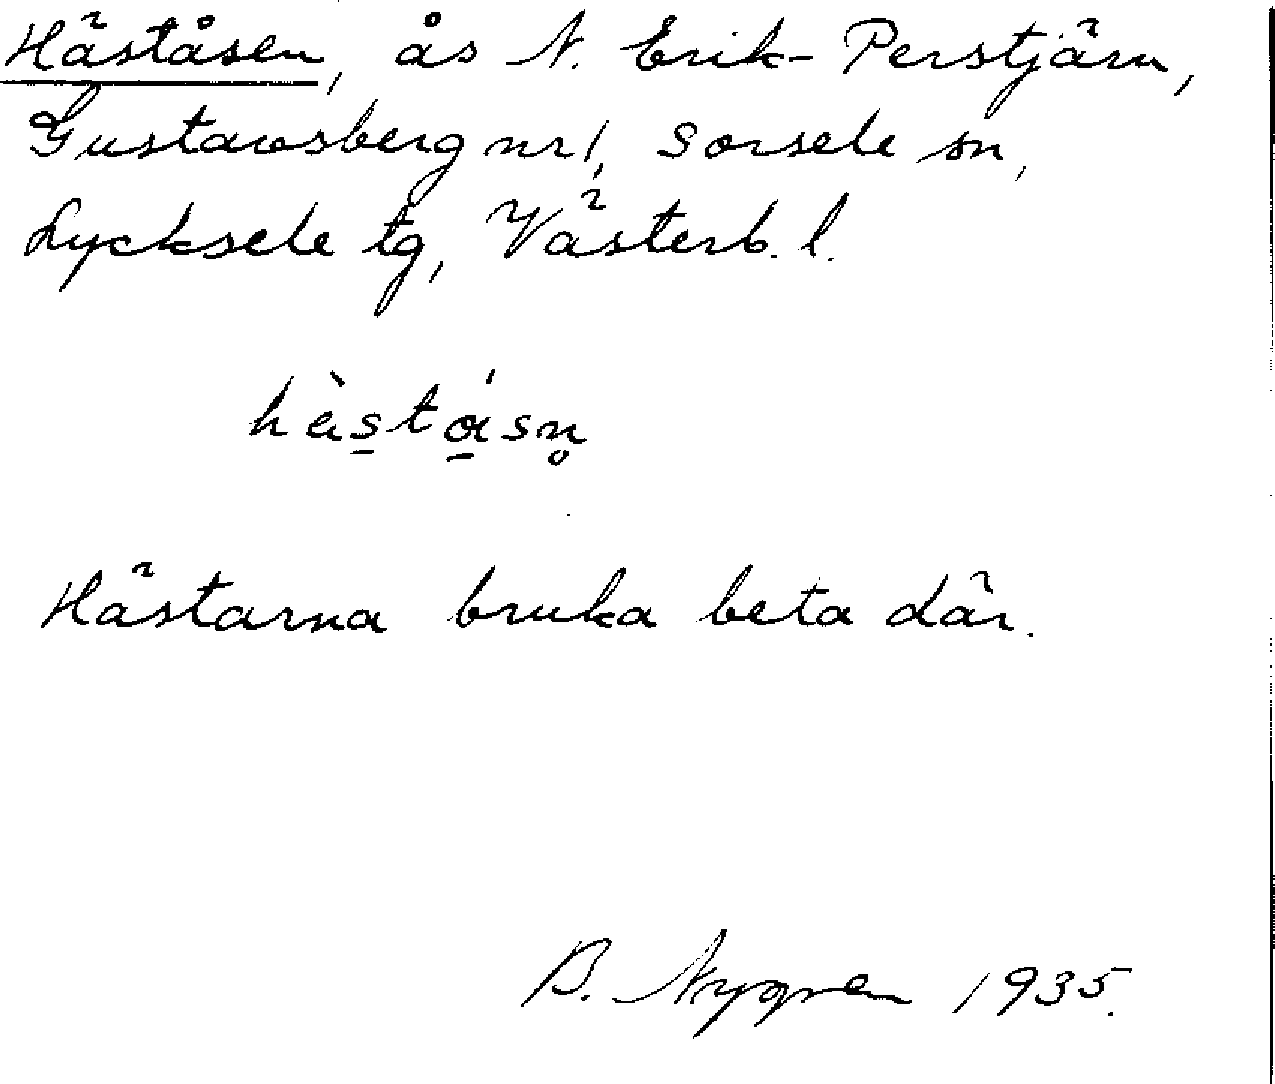 Häståsen, ås N. Erik-Perstjärn,
Gustavsberg nr 1, Sorsele sn,
Lycksele tg, Västerb. l.
hàs̠tɑ̠́sn̥
Hästarna bruka beta där.
B. Nygren 1935.